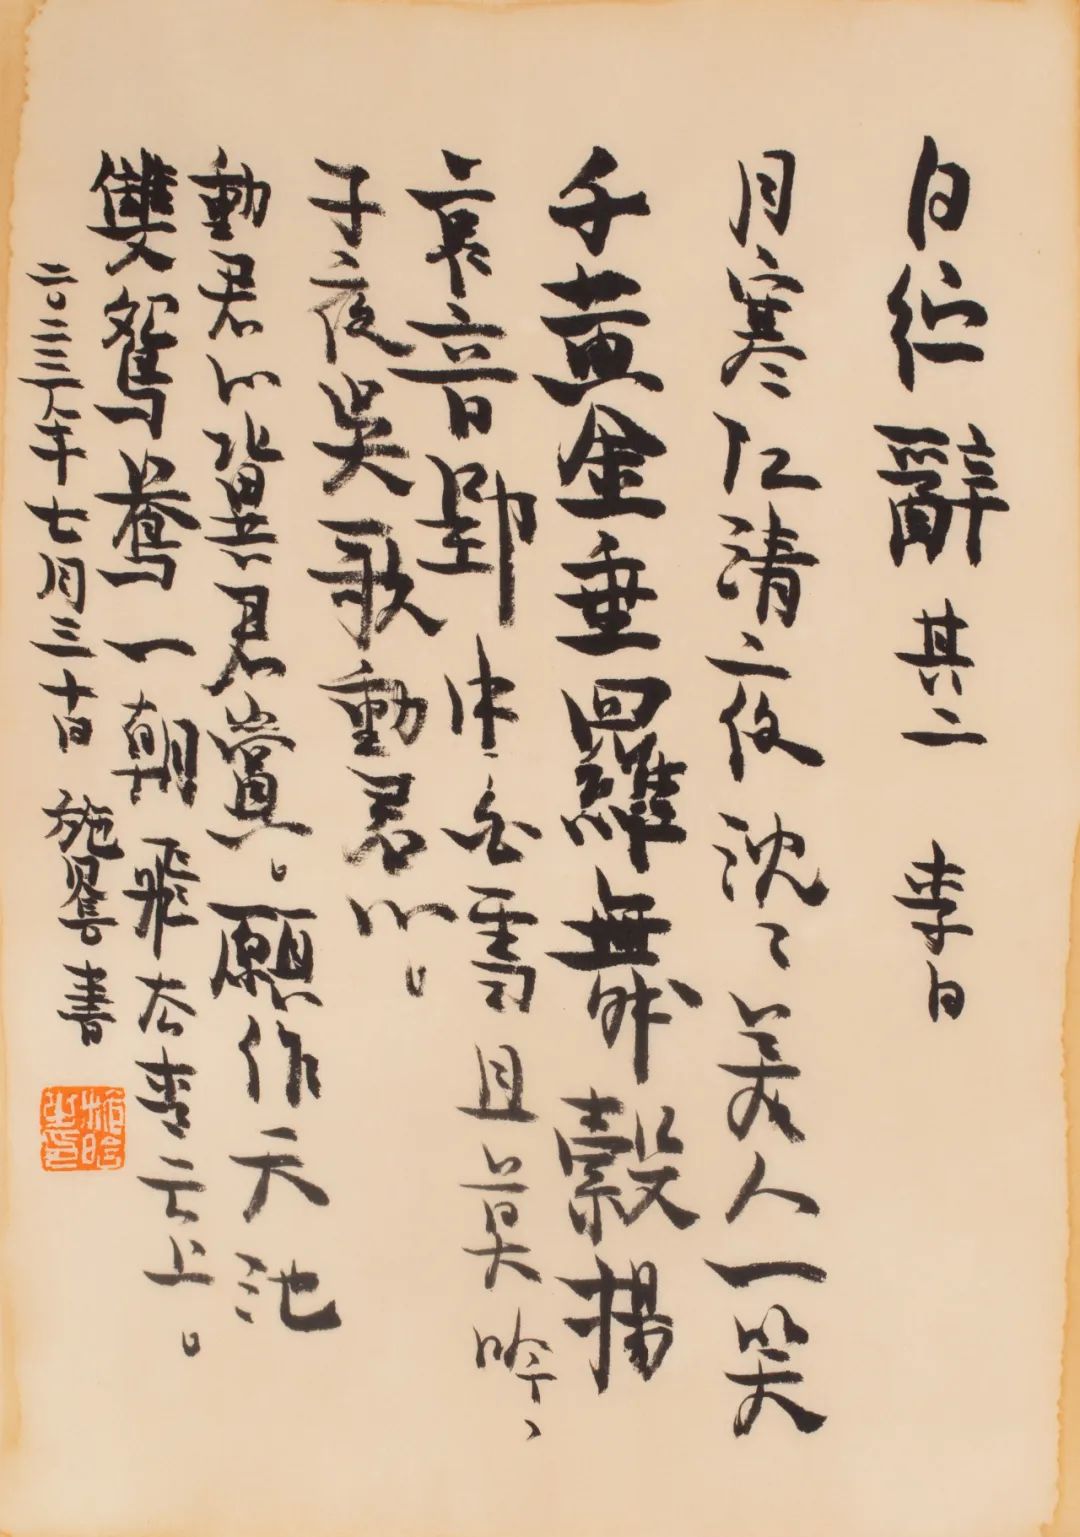 白紵辭 其二 李白
月寒江清夜沈々美人一笑
千黃金垂羅舞縠揚
哀音郢中白雪且莫吟、
子夜吳歌動君心。
動君心冀君賞。願作天池
雙鴛鴦一朝飛去青云上。
二〇二三年七月三十日 施晗書
施晗之印